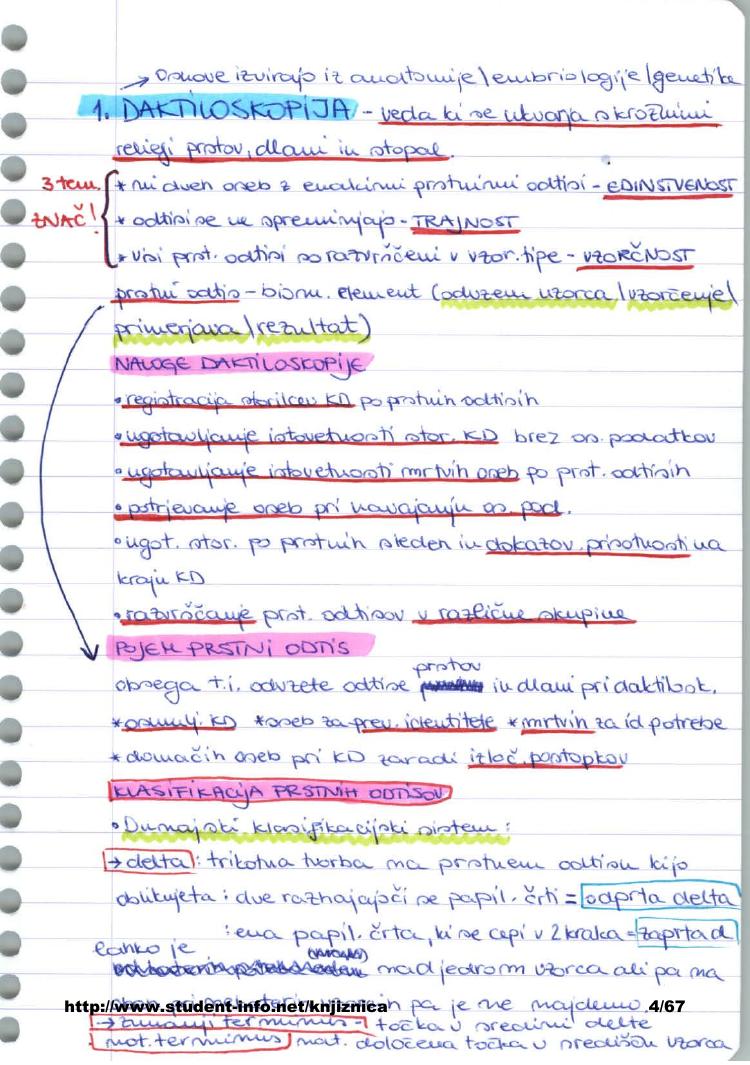 → Osnove izvirajo iz anatomije/embriologije/genetike
1. DAKTILOSKOPIJA - veda ki se ukvarja s krožnimi
reliefi prstov, dlani in stopal.
3 tem. ZNAČ!
* ni dveh oseb z enakimi prstnimi odtisi - EDINSTVENOST
* odtisi se ne spreminjajo - TRAJNOST
* vsi prst. odtisi so razvrščeni v vzor. tipe - VZORČNOST
prstni odtis - biom. element (odvzem vzorca/vzorčenje/
primerjava/rezultat)
NALOGE DAKTILOSKOPIJE
• registracija storilcev KD po prstnih odtisih
• ugotavljanje istovetnosti stor. KD brez os. podatkov
• ugotavljanje istovetnosti mrtvih oseb po prst. odtisih
• potrjevanje oseb pri navajanju os. pod.
• ugot. stor. po prstnih sledeh in dokazov. prisotnosti na
kraju KD
• razvrščanje prst. odtisov v različne skupine
POJEM PRSTNI ODTIS
obsega t.i. odvzete odtise prstov in dlani pri daktilosk.
*osumlj. KD *oseb za prev. identitete *mrtvih za id potrebe
* domačih oseb pri KD zaradi izloč. postopkov
KLASIFIKACIJA PRSTNIH ODTISOV
• Dunajski klasifikacijski sistem:
→ delta: trikotna tvorba na prstnem odtisu ki jo
oblikujeta: dve razhajajoči se papil. črti = odprta delta
: ena papil. črta, ki se cepi v 2 kraka = zaprta d
lahko je
nad jedrom vzorca ali pa na
in pa je ne najdemo.
http://www.student-info.net/knjiznica 4/67
→ zunanji terminus - točka v sredini delte
not. terminus nat. določena točka v središču vzorca